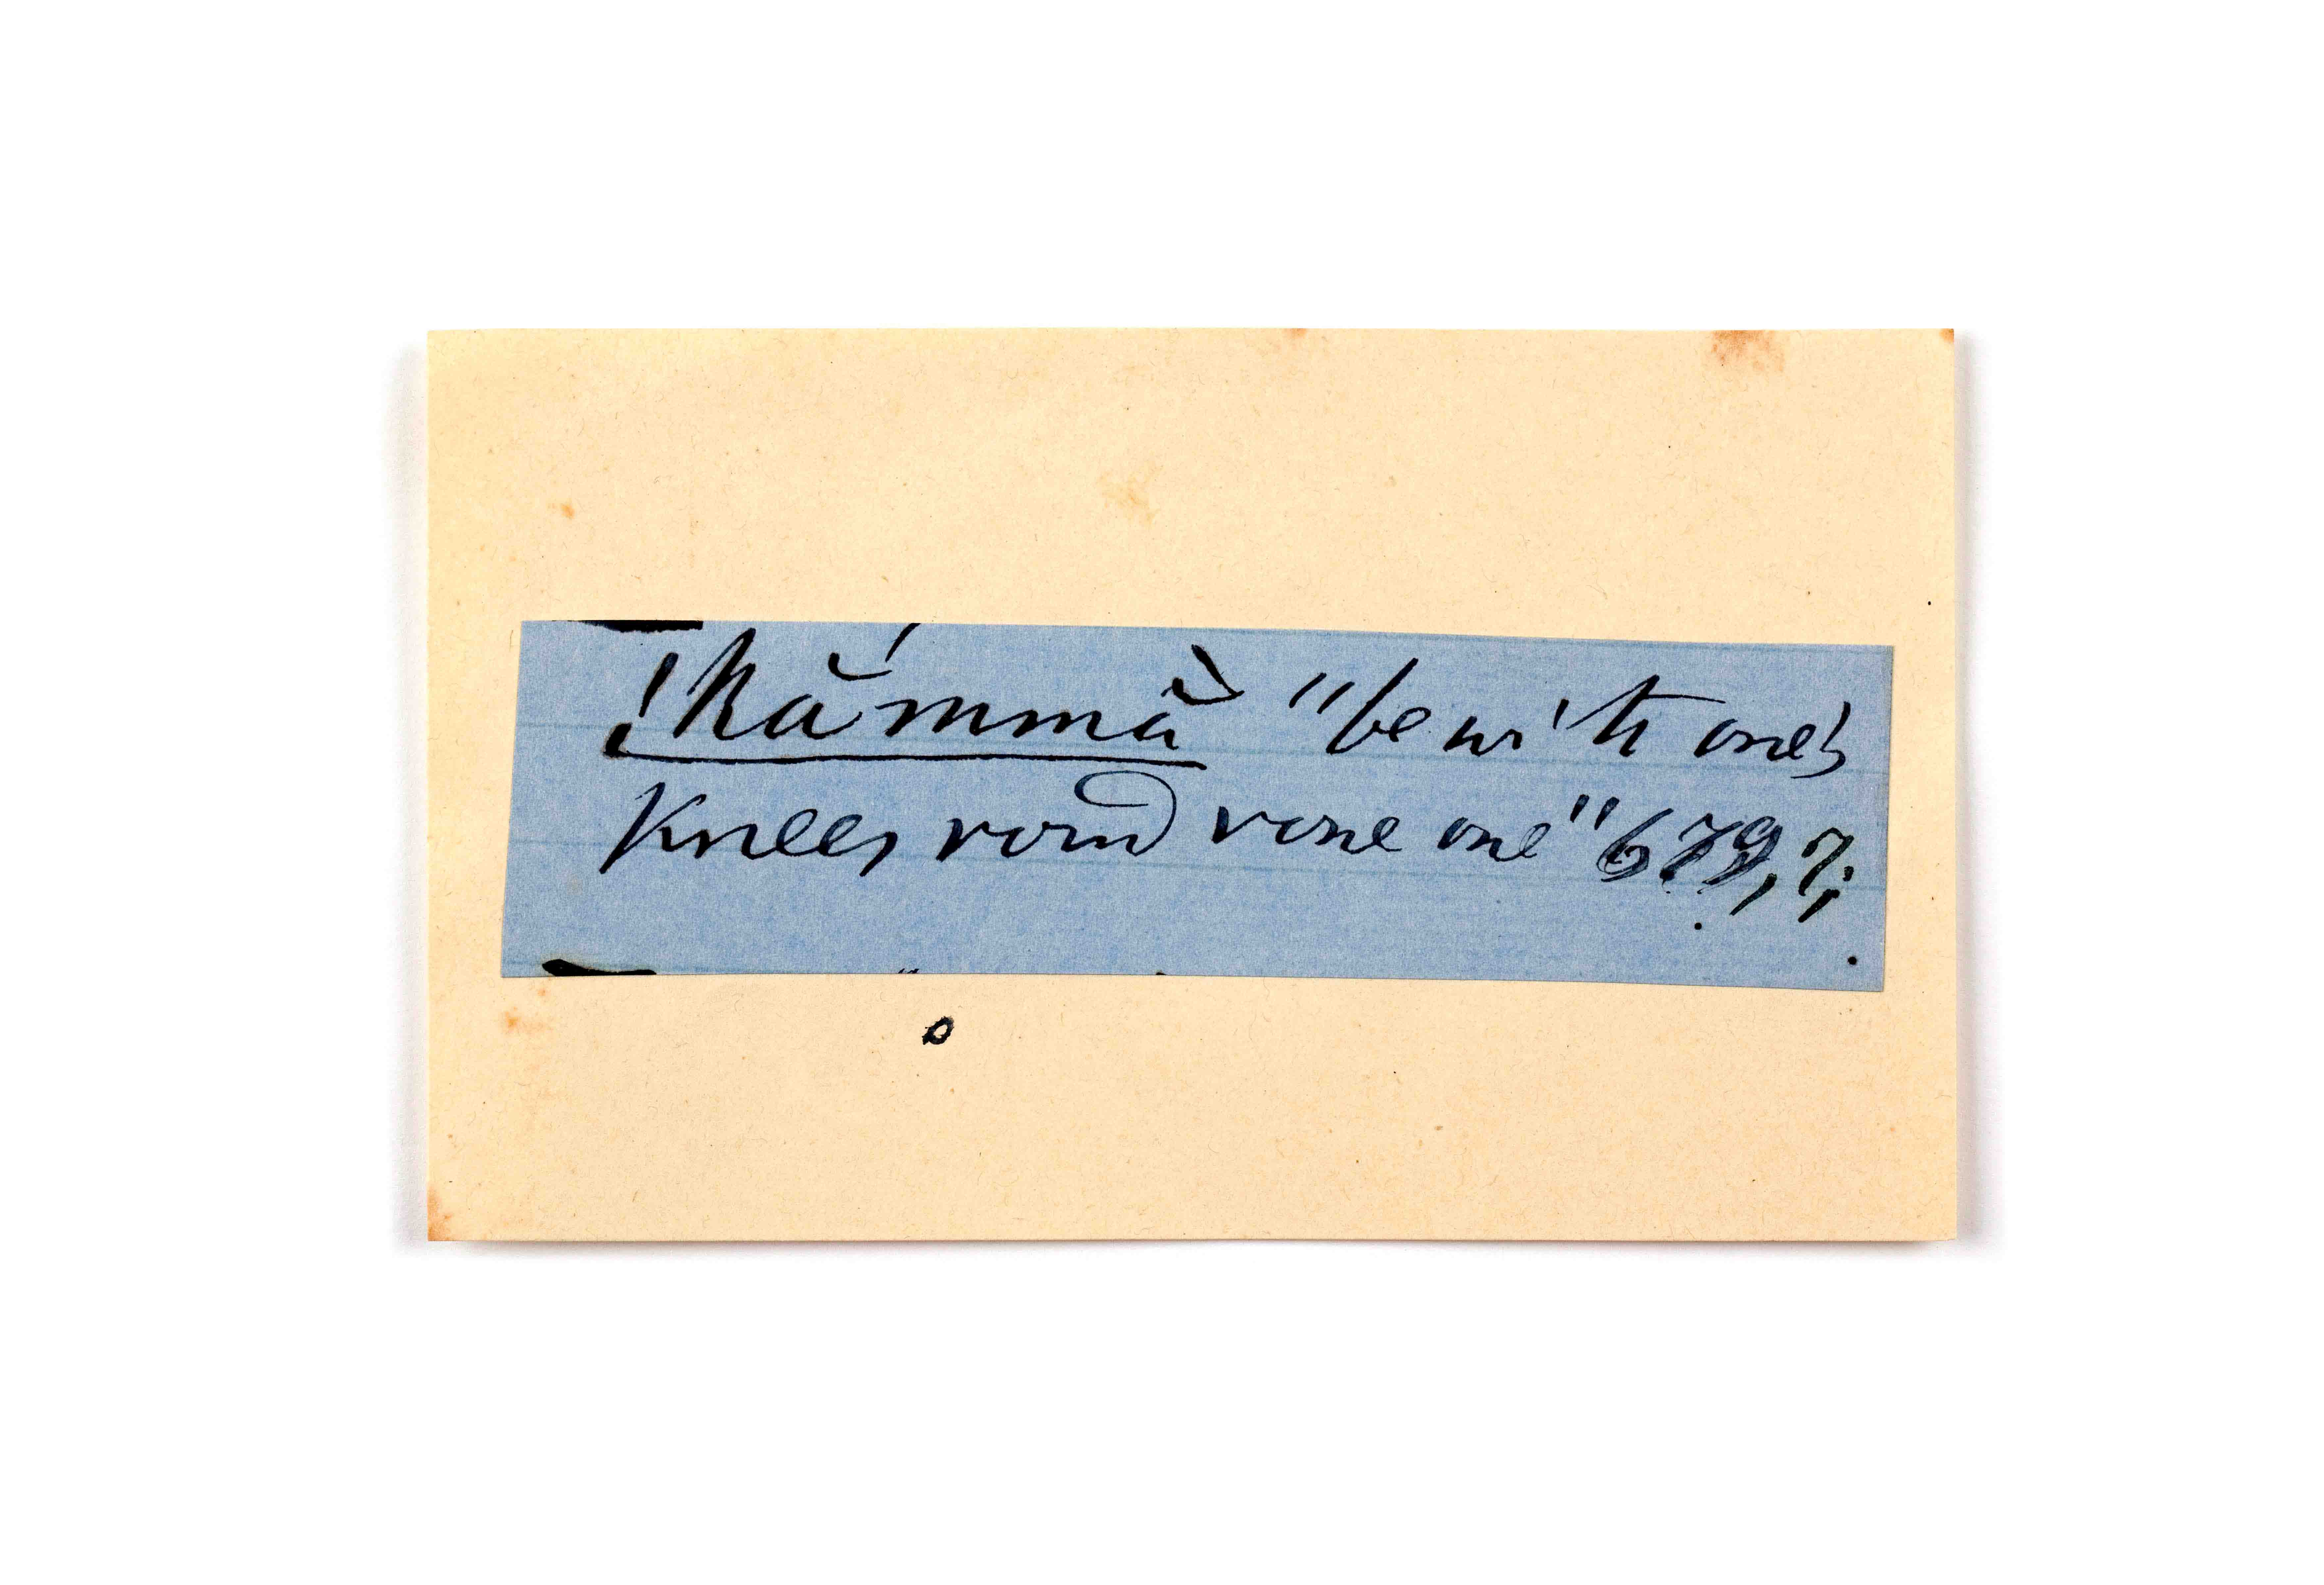 !kămmă "be with one's
knees round some one" 679, 7;